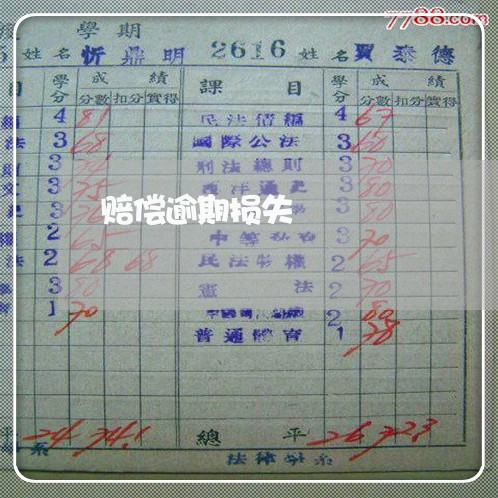 7788.com
學期
姓名 忻鼎明 2616 姓名 賈泰德
目 學分 成績 課目 學分 成績
分數 扣分 實得 分數 扣分 實得
4 81 民法債編 4 67
法 3 68 國際公法 3 60
3 刑法總則 3 70
文 3 75 西洋通史 3 80
3 3 80
2 65 3 70
法 2 68 68 民法物權 2 65
3 80 憲法 2 70
1 70 2 80
普通體育 1 78
賠偿逾期损失
平 24 74.1 總平 26 72.3
系 法律學系